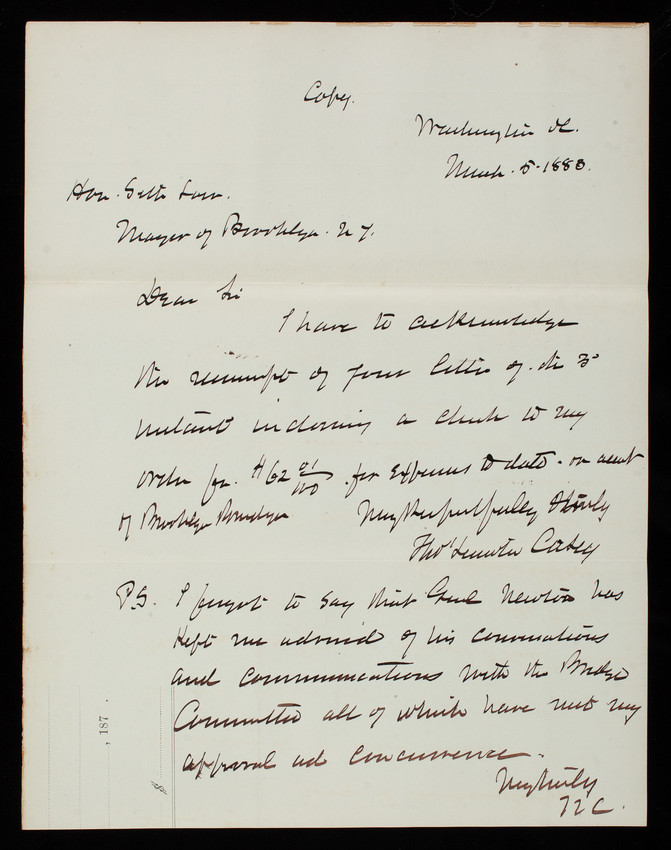 Copy.
Washington DC.
March. 5. 1883.
Hon. Seth Low.
Mayor of Brooklyn. N Y.
Dear Sir
I have to acknowledge
the receipt of your letter of the 3d
instant inclosing a check to my
order for. $62 01/100 . for Expenses to date. on acct
of Brooklyn Bridge
Very Respectfully
Thos Lincoln Casey
P.S. I forgot to say that Genl Newton has
Kept me advised of his conversations
and communications with the Bridge
Committee all of which have met my
approval and concurrence.
Very truly
TLC.
, 187 .